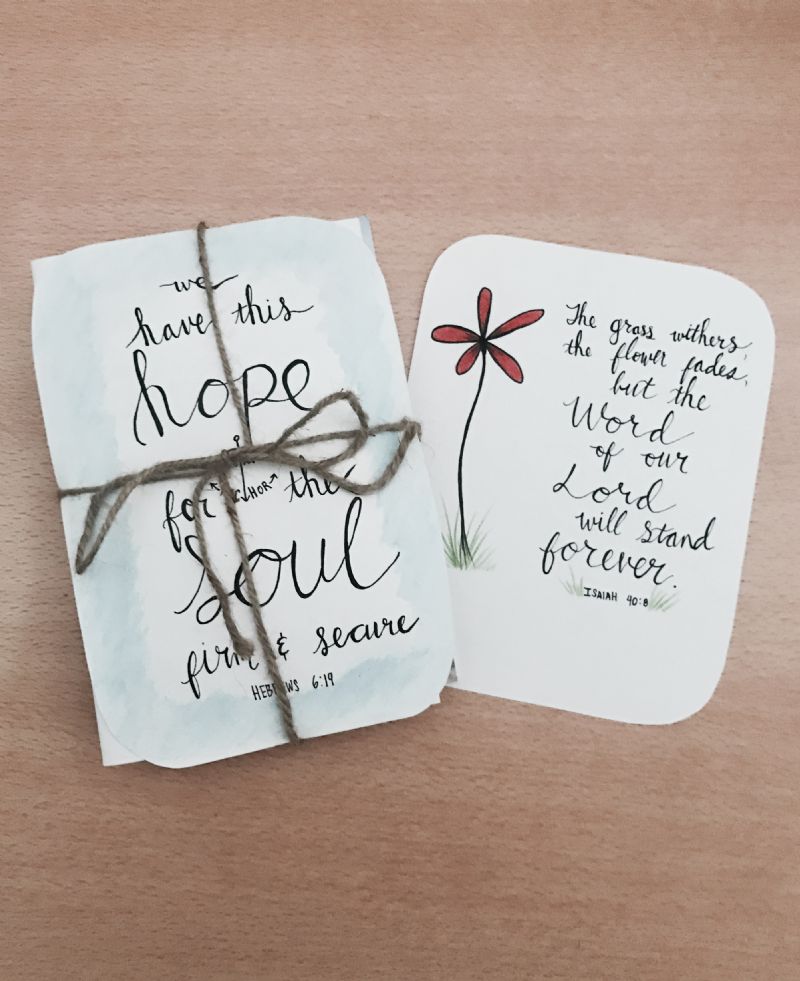 we
have this
hope
for ANCHOR the
Soul
firm & secure
HEBREWS 6:19
The grass withers,
the flower fades,
but the
Word
of our
Lord
will stand
forever.
ISAIAH 40:8